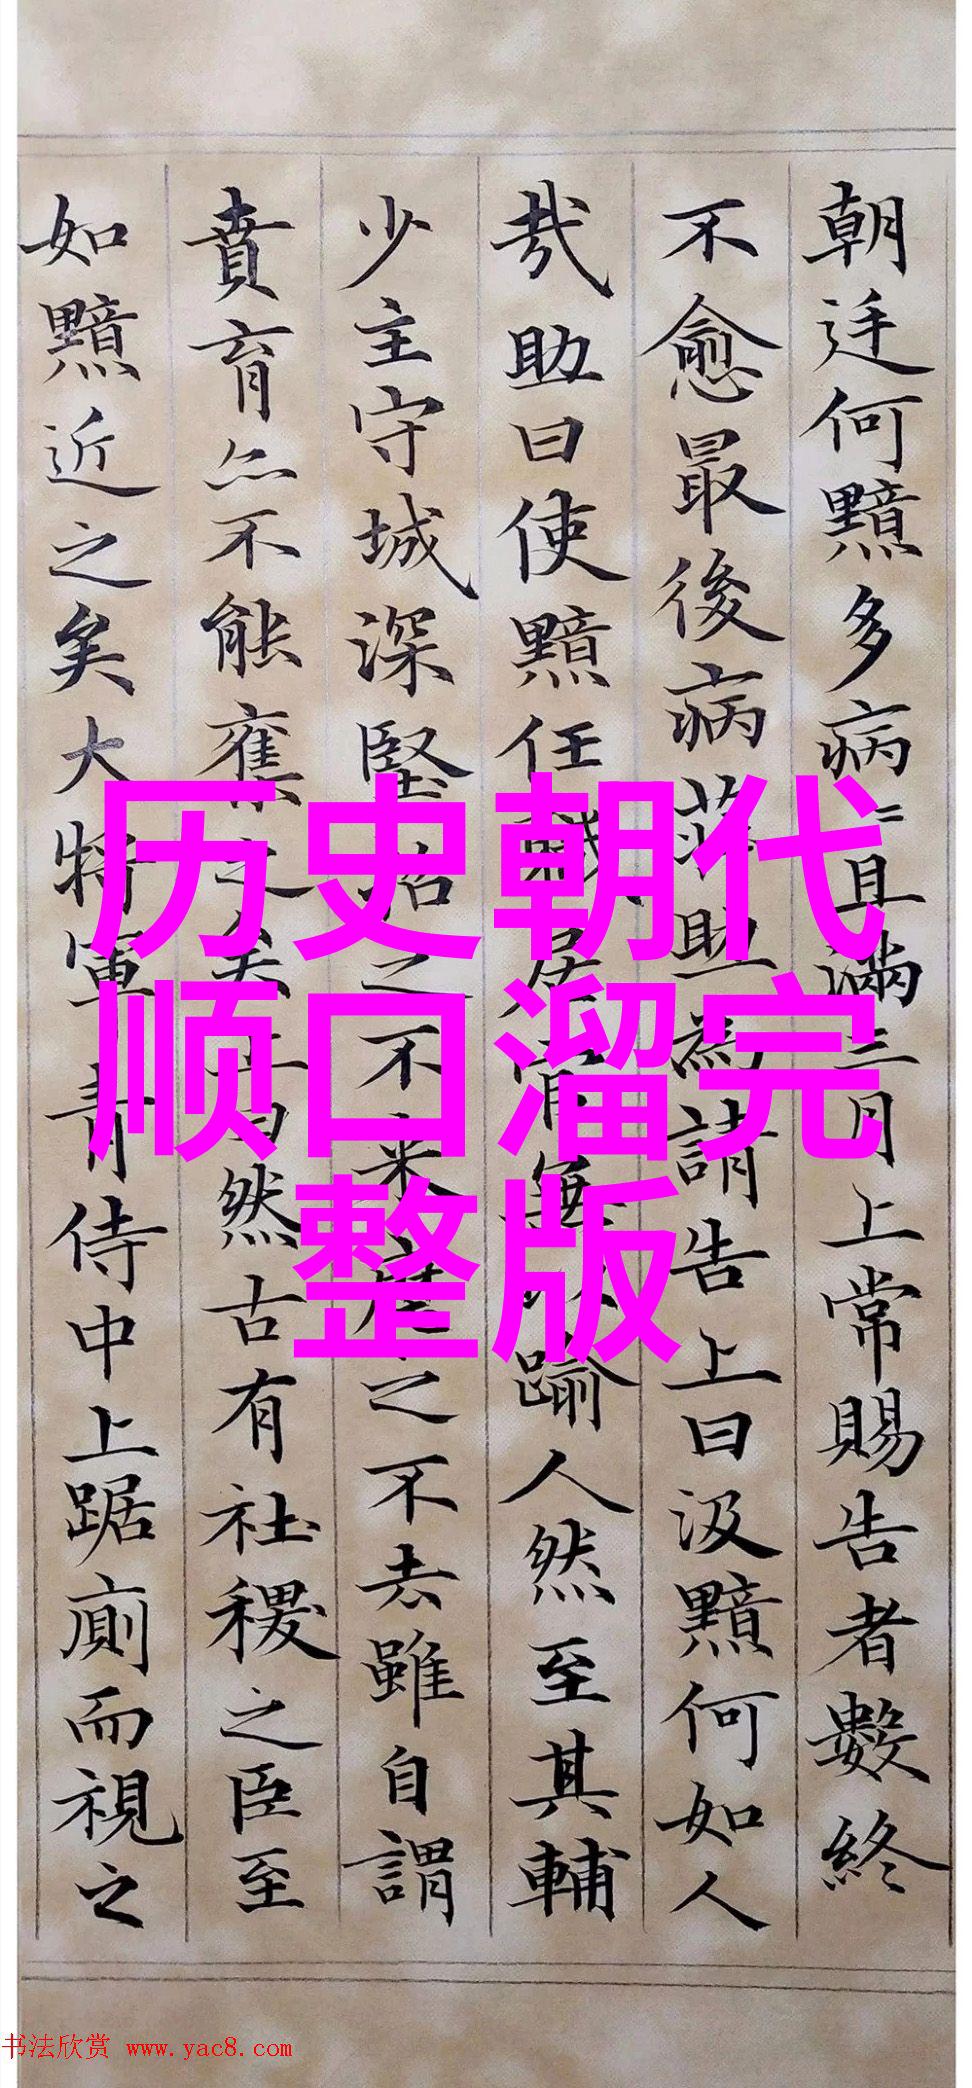 朝廷何黯多病〻且滿三月上常賜告者數終
不愈最後病莊助為請告上曰汲黯何如人
哉助曰使黯任職居官無以踰人然至其輔
少主守城深堅招之不来麾之不去雖自謂
賁育亦不能奪之矣上曰然古有社稷之臣至
如黯近之矣大將軍青侍中上踞廁而視之
历史朝代
顺口溜完
整版
书法欣赏 www.yac8.com